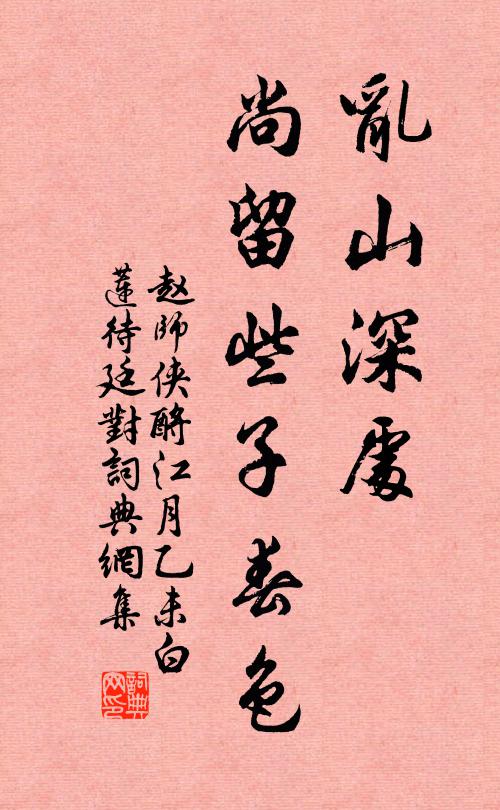 亂山深處
尚留些子春色
赵師俠酹江月乙未白
蓮待廷對詞典網集
詞典网印